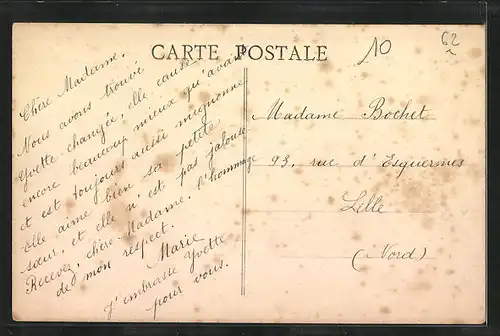 CARTE POSTALE
10
62
Chère Madame,
Nous avons trouvé
Yvette changée, elle cause
encore beaucoup mieux qu'avant
et est toujours aussi mignonne
Elle aime bien sa petite
sœur, et elle n'est pas jalouse
Recevez, chère Madame, l'hommage
de mon respect.
Marie
J'embrasse Yvette
pour vous.
Madame Bochet
93, rue d'Esquermes
Lille
(Nord)